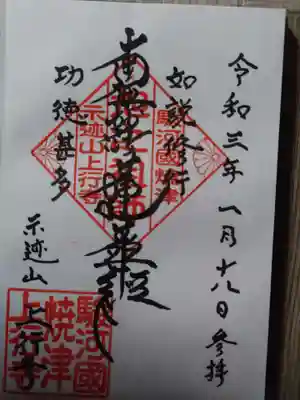 令和三年一月十八日参拝
如説修行
南無妙法蓮華経
功徳甚多
示迹山 上行寺
駿河國焼津
示迹山上行寺
駿河國
焼津
上行寺